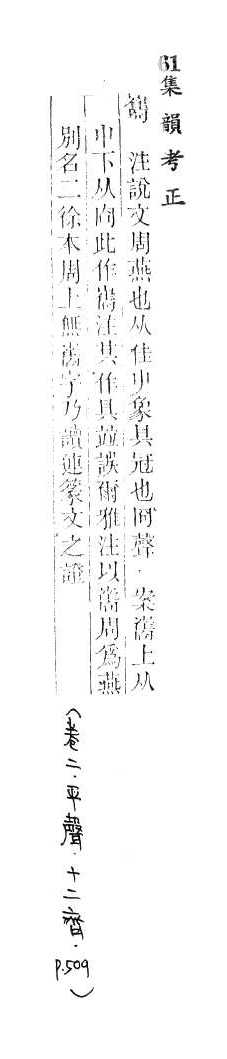 61集韻考正
巂　注說文周燕也从隹屮象其冠也㕯聲．案巂上从
屮下从㕯此作巂注其作具竝誤爾雅注以巂周爲燕
別名二徐本周上無巂字乃讀連篆文之證
(卷二．平聲．十二齊．p.509)